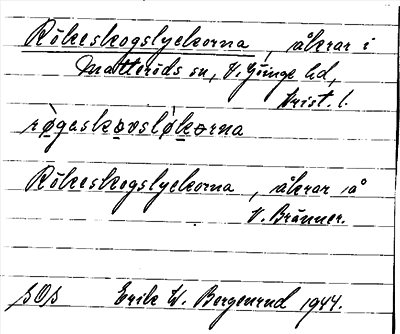 Rökeskogslyckorna, åkrar i
Matteröds sn, V. Göinge hd,
Krist. l.
røgaskovsløkorna
Rökeskogslyckorna, åkrar å
V. Bränner.
SOS Erik W. Bergenrud 1944.